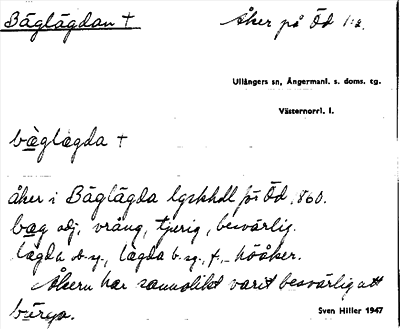 Båglågdan † Åker på Öd 1:2.
Ullångers sn, Ångermanl. s. doms. tg.
Västernorrl. l.
båglagda †
åker i Båglågda lgskhdl för Öd, 1860.
bag adj, vrång, tjurig, besvärlig.
lagda ob. sg., lagda b. sg., f., höåker.
Åkern har sannolikt varit besvärlig att
bärga.
Sven Hiller 1947